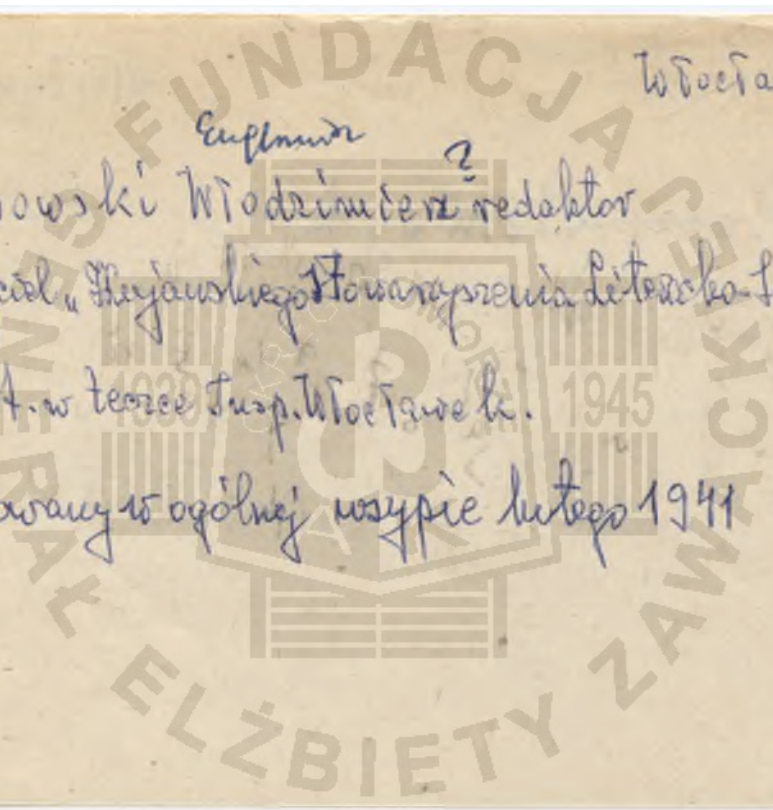 Włocła
Eugeniusz ?
owski Włodzimierz redaktor
ciel „Kujawskiego Stowarzyszenia Literacko-
t. w teczce Insp. Włocławek.
owany w ogólnej wsypie lutego 1941
FUNDACJA GENERAŁ ELŻBIETY ZAWACKIEJ
1939 1945